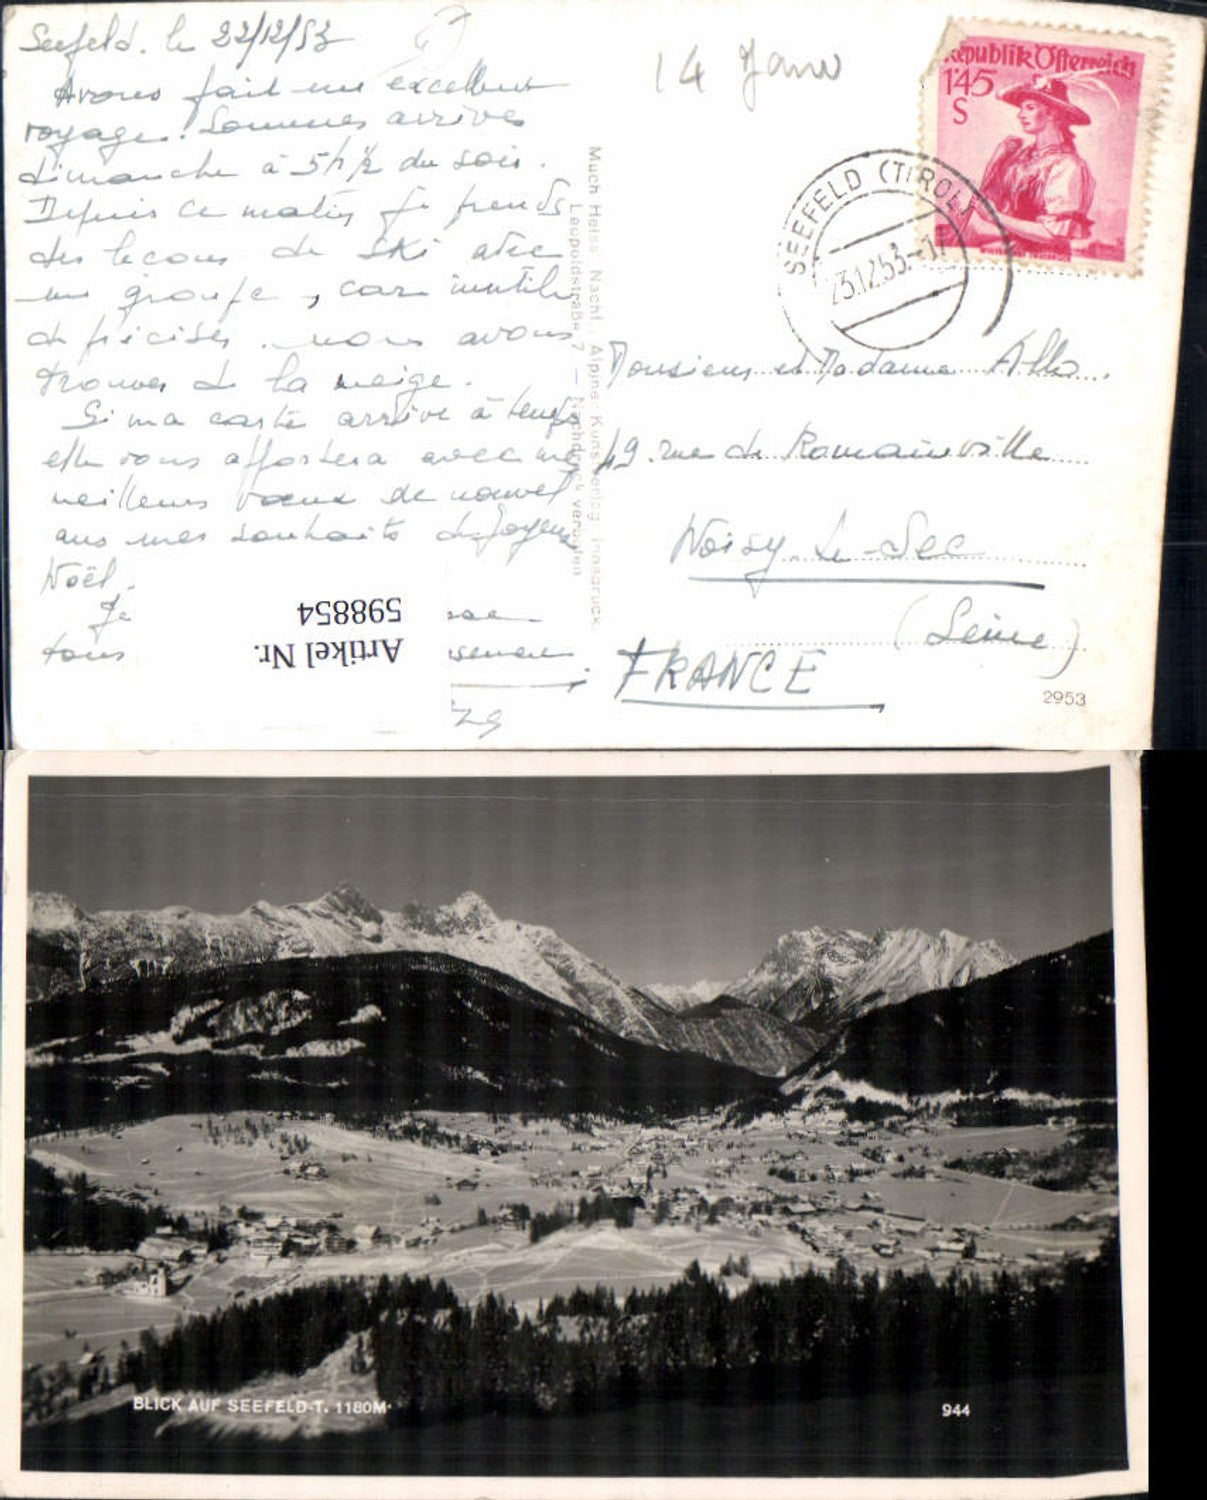 Seefeld. le 22/12/53
Avons fait un excellent
voyage. Sommes arrivés
dimanche à 5h1/2 du soir.
Depuis ce matin je prends
des leçons de ski avec
un groupe, car inutile
de préciser. nous avons
trouver de la neige.
Si ma carte arrive à temps
elle vous apportera avec mes
meilleurs voeux de nouvel
ans mes souhaits de joyeux
Noël.
Je
tous
14 Janv
Republik Österreich
1'45
S
SEEFELD (TIROL)
23.12.53.-17
Much Heiss Nachf. Alpiner Kunstverlag Innsbruck,
Leopoldstraße 7 — Nachdruck verboten
Monsieur et Madame
49 rue de Romainville
Noisy-Le-Sec
(Seine)
FRANCE
2953
Artikel Nr.
598854
BLICK AUF SEEFELD-T. 1180M
944